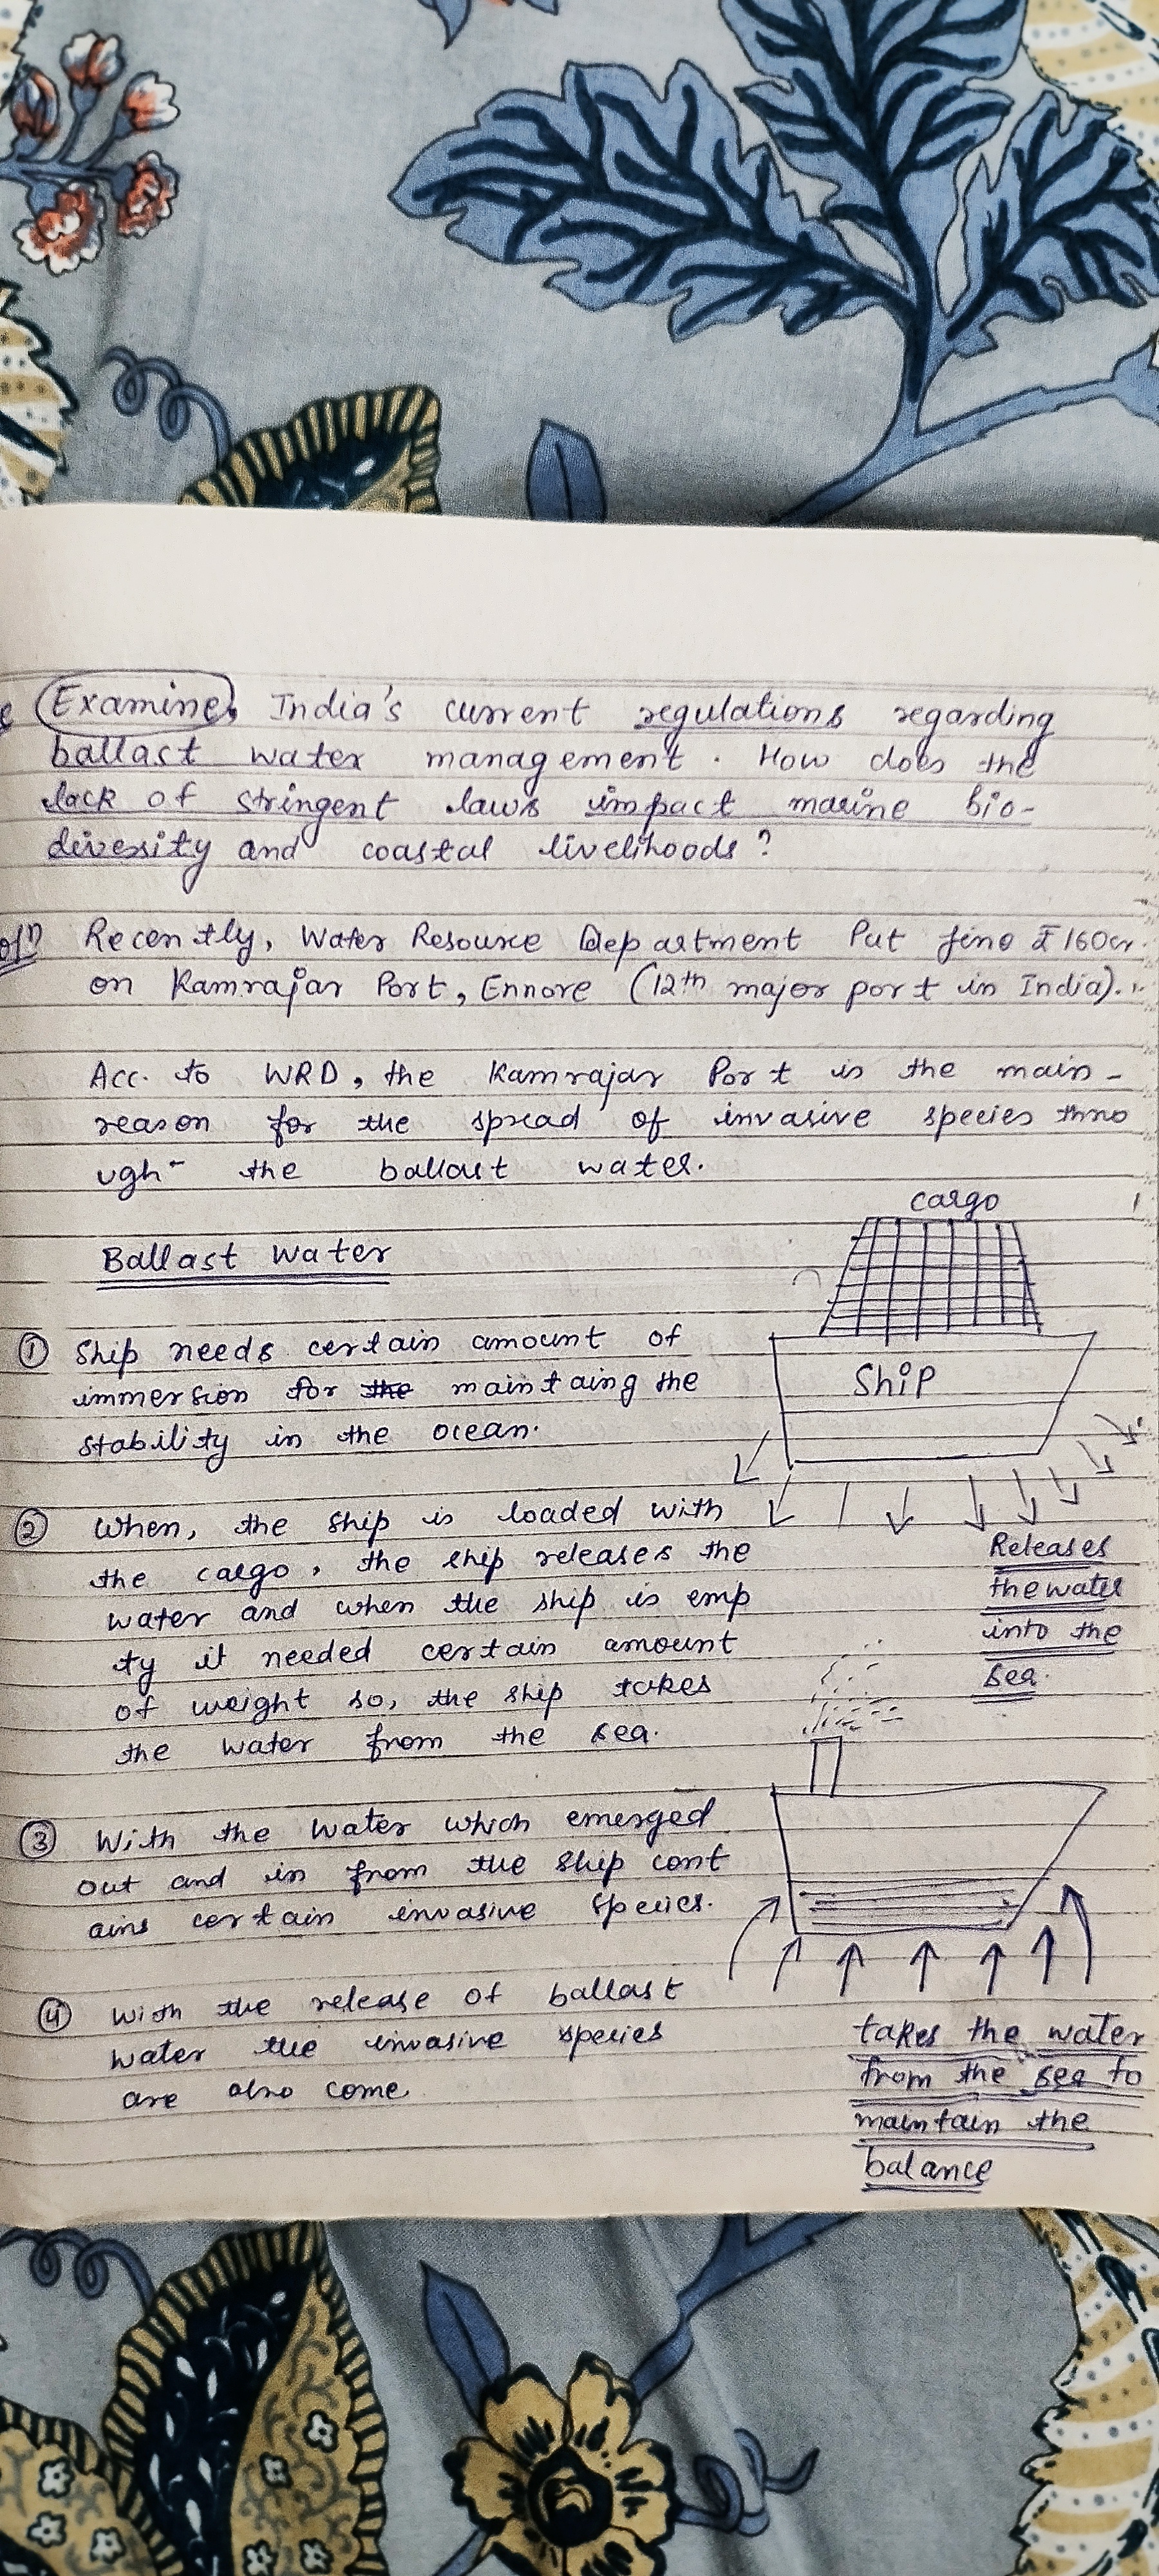 Examine. India's current regulations regarding
ballast water management. How does the
lack of stringent laws impact marine bio-
diversity and coastal livelihoods?
Recently, Water Resource Department Put fine ₹160cr.
on Kamrajar Port, Ennore (12th major port in India).
Acc. to WRD, the Kamrajar Port is the main-
reason for the spread of invasive species thro
ugh- the ballast water.
Ballast Water
cargo
Ship
① Ship needs certain amount of
immersion for the maintaing the
stability in the ocean.
② When, the ship is loaded with
the cargo, the ship releases the
water and when the ship is emp
ty it needed certain amount
of weight so, the ship takes
the water from the sea.
Releases
the water
into the
sea.
③ With the water which emerged
out and in from the ship cont
ains certain invasive species.
④ With the release of ballast
water the invasive species
are also come
takes the water
from the sea to
maintain the
balance